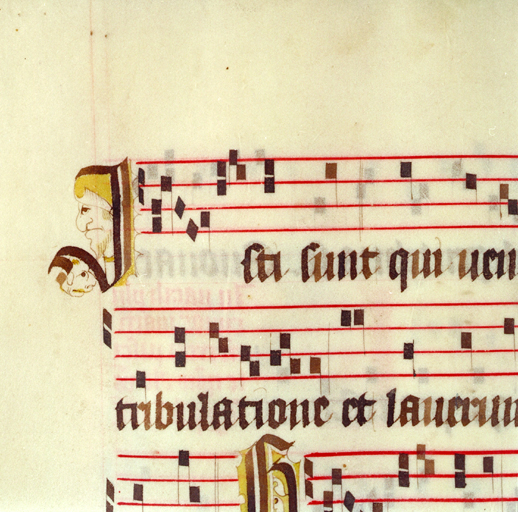 Isti sunt qui uen
tribulatione et lauerun
H